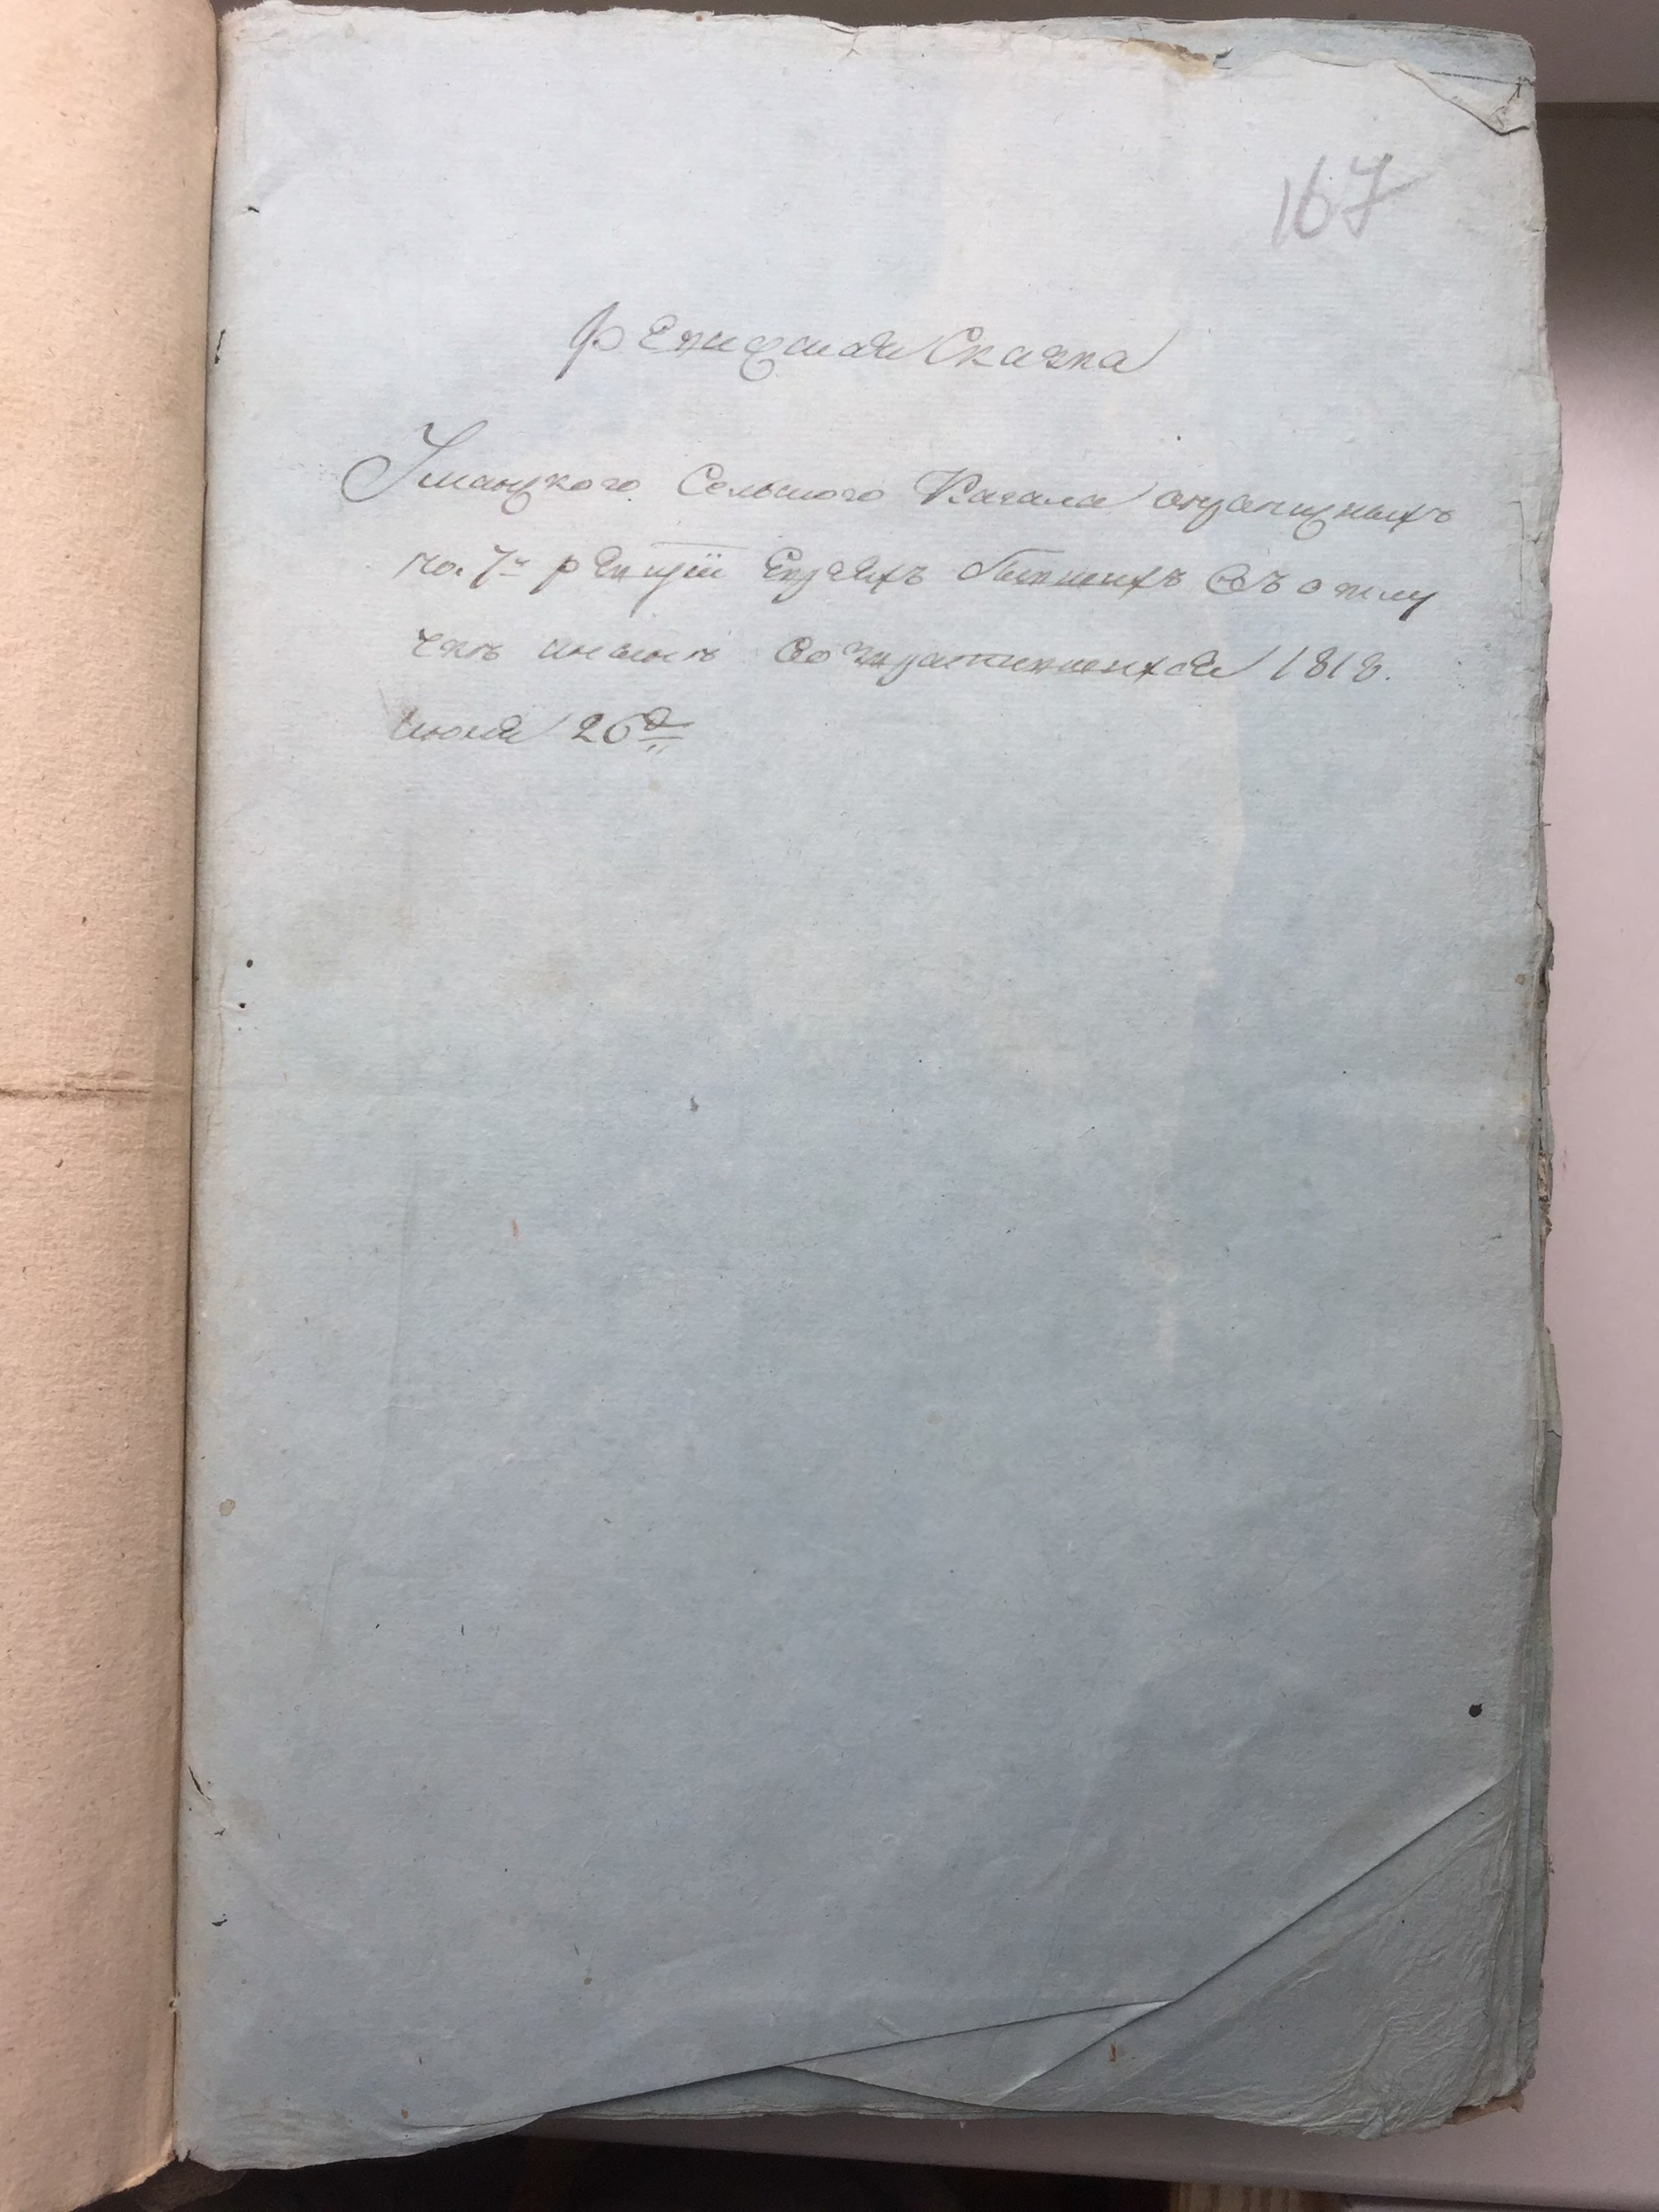 167
Ревизская Сказка
Уманского Сельского Кагала
по 7й ревизіи Евреяхъ бывшихъ въ отлу
чкѣ инынѣ возвратившихся 1818.
июня 26д